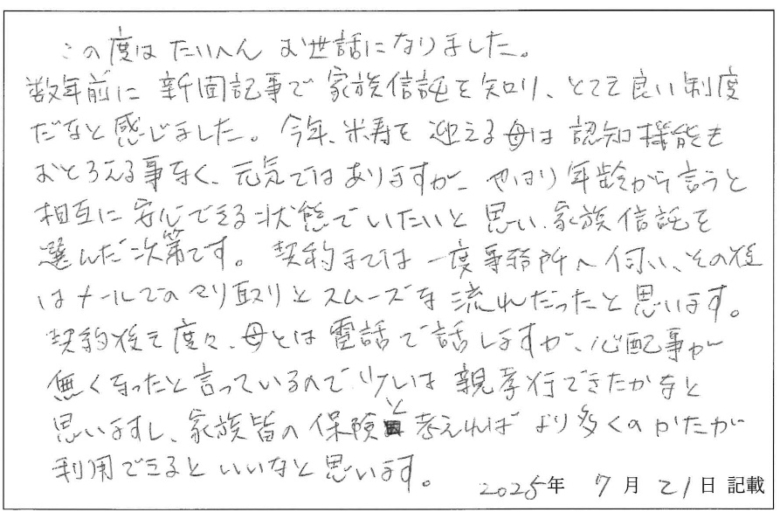 この度は たいへん お世話になりました。
数年前に 新聞記事で 家族信託を知り、とても良い制度
だなと感じました。今年、米寿を 迎える母は 認知機能も
おとろえる事なく、元気ではありますが、やはり年齢から言うと
相互に 安心できる状態でいたいと思い、家族信託を
選んだ次第です。契約までは 一度事務所へ伺い、その後
はメールでのやり取りとスムーズな 流れだったと思います。
契約後も度々、母とは電話で話しますが、心配事が
無くなったと言っているので、少しは 親孝行できたかなと
思いますし、家族皆の保険と考えれば より多くのかたが
利用できるといいなと思います。 2025年 7月 21日 記載